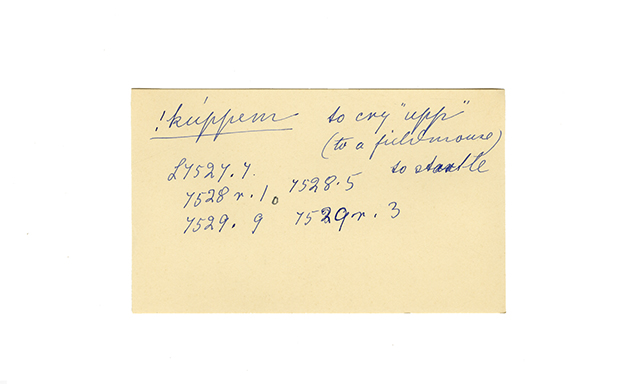 !kúppem to cry "upp"
(to a fieldmouse)
L7527.7. to startle
7528 r.10 7528.5
7529.9 7529r.3